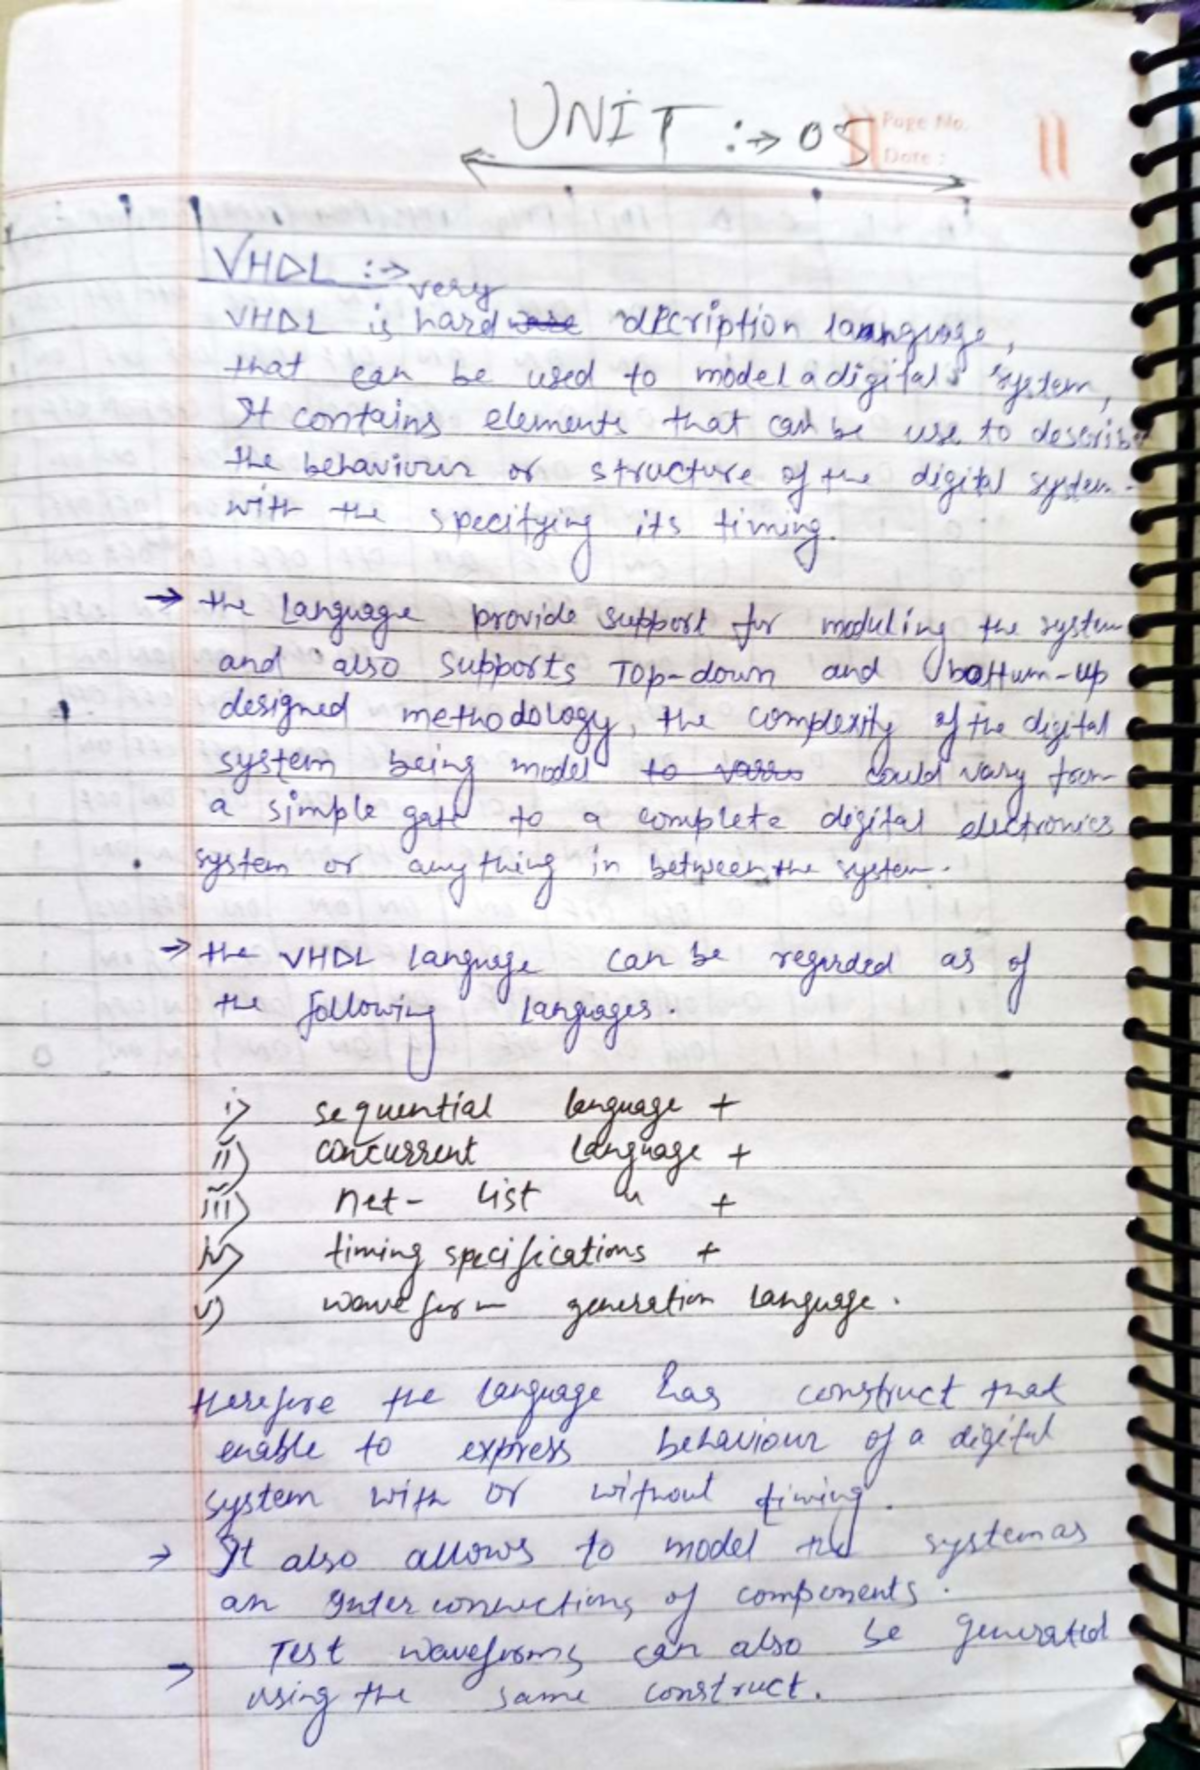 UNIT :→ 05
Page No.
Date :
VHDL :→
very
VHDL is hardware dECription language,
that can be used to model a digital system,
It contains elements that can be use to describe
the behaviour or structure of the digital system.
with the specifying its timing.
→ the Language provide support for moduling the system
and also supports Top-down and bottum-up
designed methodology, the complexity of the digital
system being model to varrs could vary from
a simple gate to a complete digital electronics
system or anything in between the system.
→ the VHDL language can be regarded as of
the following languages.
i) sequential language +
ii) concurrent language +
iii) net- list " +
iv) timing specifications +
v) waveform generation language.
therefore the language has construct that
enable to express behaviour of a digital
system with or without timing.
→ It also allows to model the system as
an interconnections of components.
→ Test waveforms can also be generated
using the same construct.